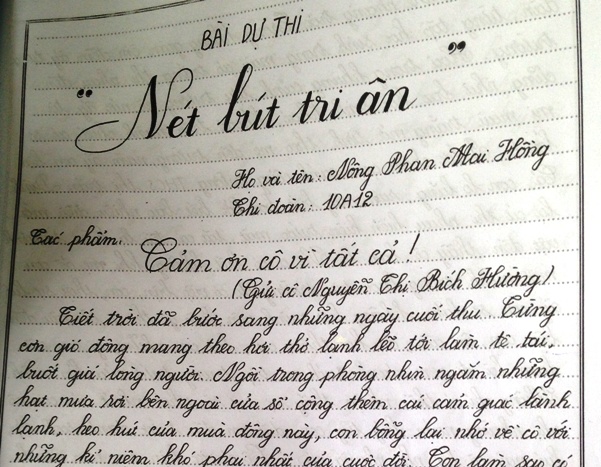 BÀI DỰ THI
" Nét bút tri ân "
Họ và tên: Nông Phan Mai Hồng
Chi đoàn: 10A12
Tác phẩm:
Cảm ơn cô vì tất cả!
(Gửi cô Nguyễn Thị Bích Hường)
Tiết trời đã bước sang những ngày cuối thu. Từng
cơn gió đông mang theo hơi thở lạnh lẽo tới làm tê tái,
buốt giá lòng người. Ngồi trong phòng nhìn ngắm những
hạt mưa rơi bên ngoài cửa sổ cộng thêm cái cảm giác lành
lạnh, heo hút của mùa đông này, con bỗng lại nhớ về cô với
những kỉ niệm khó phai nhất của cuộc đời. Con làm sao có